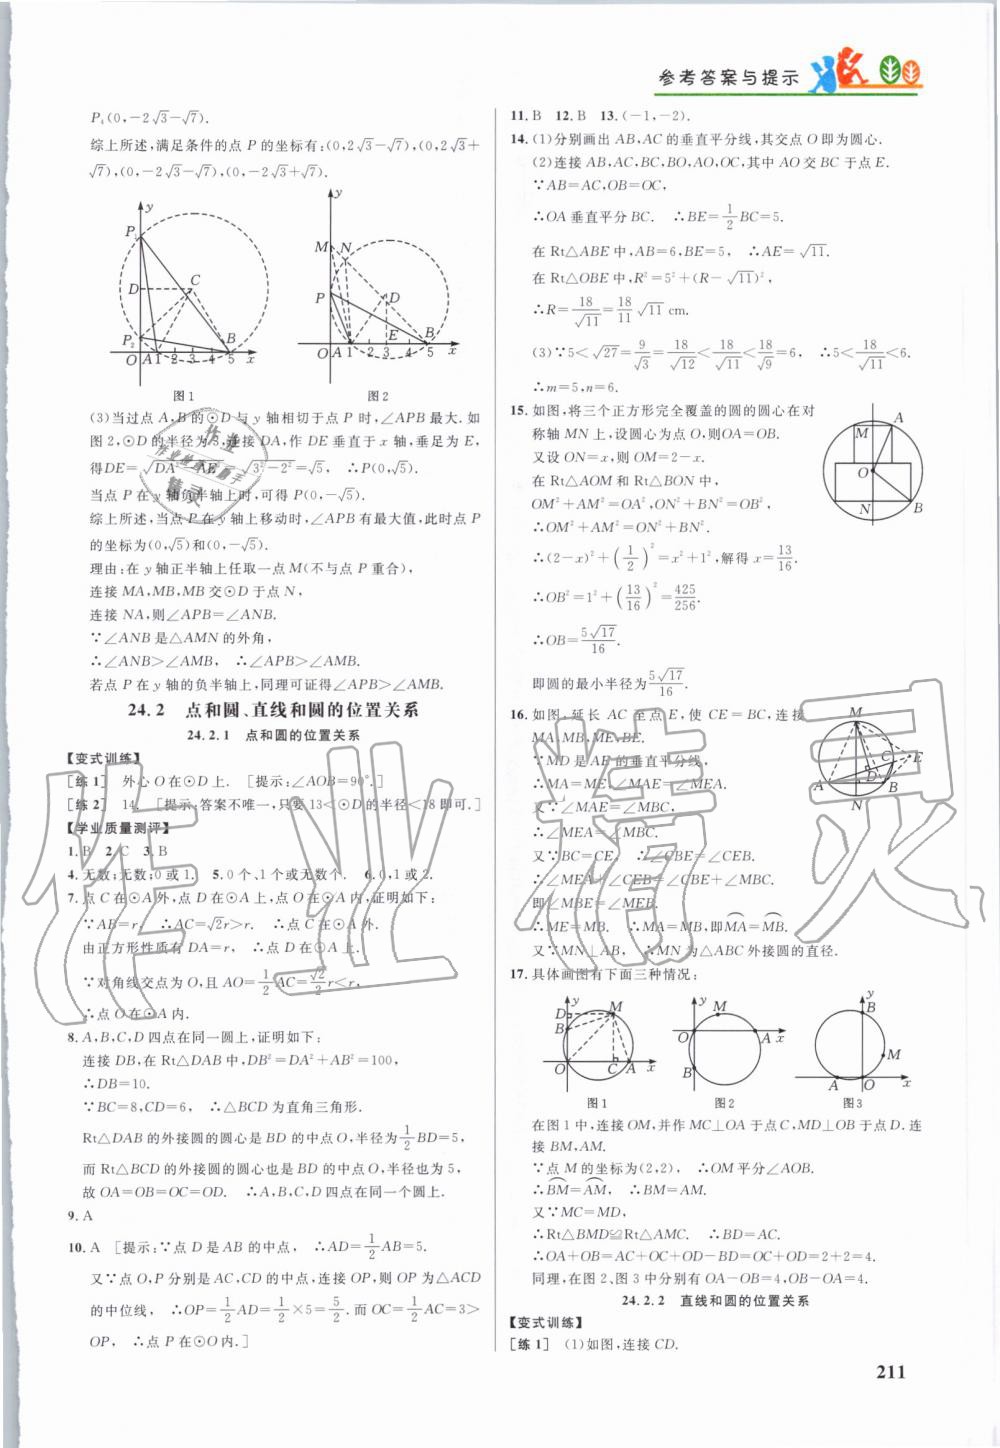 参考答案与提示
P₄(0,-2√3-√7).
综上所述,满足条件的点 P 的坐标有:(0,2√3-√7),(0,2√3+
√7),(0,-2√3-√7),(0,-2√3+√7).
图1
图2
(3)当过点 A,B 的⊙D 与 y 轴相切于点 P 时,∠APB 最大.如
图2,⊙D 的半径为 3,连接 DA,作 DE 垂直于 x 轴,垂足为 E,
得DE=√DA²-AE²=√3²-2²=√5, ∴P(0,√5).
当点 P 在 y 轴负半轴上时,可得 P(0,-√5).
综上所述,当点 P 在 y 轴上移动时,∠APB 有最大值,此时点 P
的坐标为(0,√5)和(0,-√5).
理由:在 y 轴正半轴上任取一点 M(不与点 P 重合),
连接 MA,MB,MB 交⊙D 于点 N,
连接 NA,则∠APB=∠ANB.
∵∠ANB 是△AMN 的外角,
∴∠ANB>∠AMB, ∴∠APB>∠AMB.
若点 P 在 y 轴的负半轴上,同理可证得∠APB>∠AMB.
24.2 点和圆、直线和圆的位置关系
24.2.1 点和圆的位置关系
【变式训练】
[练1] 外心 O 在⊙D 上. [提示:∠AOB=90°.]
[练2] 14. [提示:答案不唯一,只要 13<⊙D 的半径<18 即可.]
【学业质量测评】
1.B 2.C 3.B
4.无数;无数;0或1. 5.0个、1个或无数个. 6.0,1或2.
7.点 C 在⊙A 外,点 D 在⊙A 上,点 O 在⊙A 内,证明如下:
∵AB=r, ∴AC=√2r>r. ∴点 C 在⊙A 外.
由正方形性质有 DA=r, ∴点 D 在⊙A 上.
∵对角线交点为 O,且 AO=1/2AC=√2/2r<r,
∴点 O 在⊙A 内.
8.A,B,C,D 四点在同一圆上,证明如下:
连接 DB,在 Rt△DAB 中,DB²=DA²+AB²=100,
∴DB=10.
∵BC=8,CD=6, ∴△BCD 为直角三角形.
Rt△DAB 的外接圆的圆心是 BD 的中点 O,半径为1/2BD=5,
而 Rt△BCD 的外接圆的圆心也是 BD 的中点 O,半径也为 5,
故 OA=OB=OC=OD. ∴A,B,C,D 四点在同一个圆上.
9.A
10.A [提示:∵点 D 是 AB 的中点, ∴AD=1/2AB=5.
又∵点 O,P 分别是 AC,CD 的中点,连接 OP,则 OP 为△ACD
的中位线, ∴OP=1/2AD=1/2×5=5/2.而 OC=1/2AC=3>
OP, ∴点 P 在⊙O 内.]
11.B 12.B 13.(-1,-2).
14.(1)分别画出 AB,AC 的垂直平分线,其交点 O 即为圆心.
(2)连接 AB,AC,BC,BO,AO,OC,其中 AO 交 BC 于点 E.
∵AB=AC,OB=OC,
∴OA 垂直平分 BC. ∴BE=1/2BC=5.
在 Rt△ABE 中,AB=6,BE=5, ∴AE=√11.
在 Rt△OBE 中,R²=5²+(R-√11)²,
∴R=18/√11=18/11√11 cm.
(3)∵5<√27=9/√3=18/√12<18/√11<18/√9=6, ∴5<18/√11<6.
∴m=5,n=6.
15.如图,将三个正方形完全覆盖的圆的圆心在对
称轴 MN 上,设圆心为点 O,则OA=OB.
又设 ON=x,则 OM=2-x.
在 Rt△AOM 和 Rt△BON 中,
OM²+AM²=OA²,ON²+BN²=OB²,
∴OM²+AM²=ON²+BN².
∴(2-x)²+(1/2)²=x²+1²,解得 x=13/16.
∴OB²=1²+(13/16)²=425/256.
∴OB=5√17/16.
即圆的最小半径为5√17/16.
16.如图,延长 AC 至点 E,使 CE=BC,连接
MA,MB,ME,BE.
∵MD 是 AE 的垂直平分线,
∴MA=ME,∠MAE=∠MEA.
又∵∠MAE=∠MBC,
∴∠MEA=∠MBC.
又∵BC=CE, ∴∠CBE=∠CEB.
∴∠MEA+∠CEB=∠CBE+∠MBC.
即∠MBE=∠MEB.
∴ME=MB. ∴MA=MB,即MA=MB.
又∵MN⊥AB, ∴MN 为△ABC 外接圆的直径.
17.具体画图有下面三种情况:
图1
图2
图3
在图 1 中,连接 OM,并作 MC⊥OA 于点 C,MD⊥OB 于点 D.连
接 BM,AM.
∵点 M 的坐标为(2,2), ∴OM 平分∠AOB.
∴BM=AM, ∴BM=AM.
又∵MC=MD,
∴Rt△BMD≌Rt△AMC. ∴BD=AC.
∴OA+OB=AC+OC+OD-BD=OC+OD=2+2=4.
同理,在图 2、图 3 中分别有 OA-OB=4,OB-OA=4.
24.2.2 直线和圆的位置关系
【变式训练】
[练1] (1)如图,连接 CD.
211